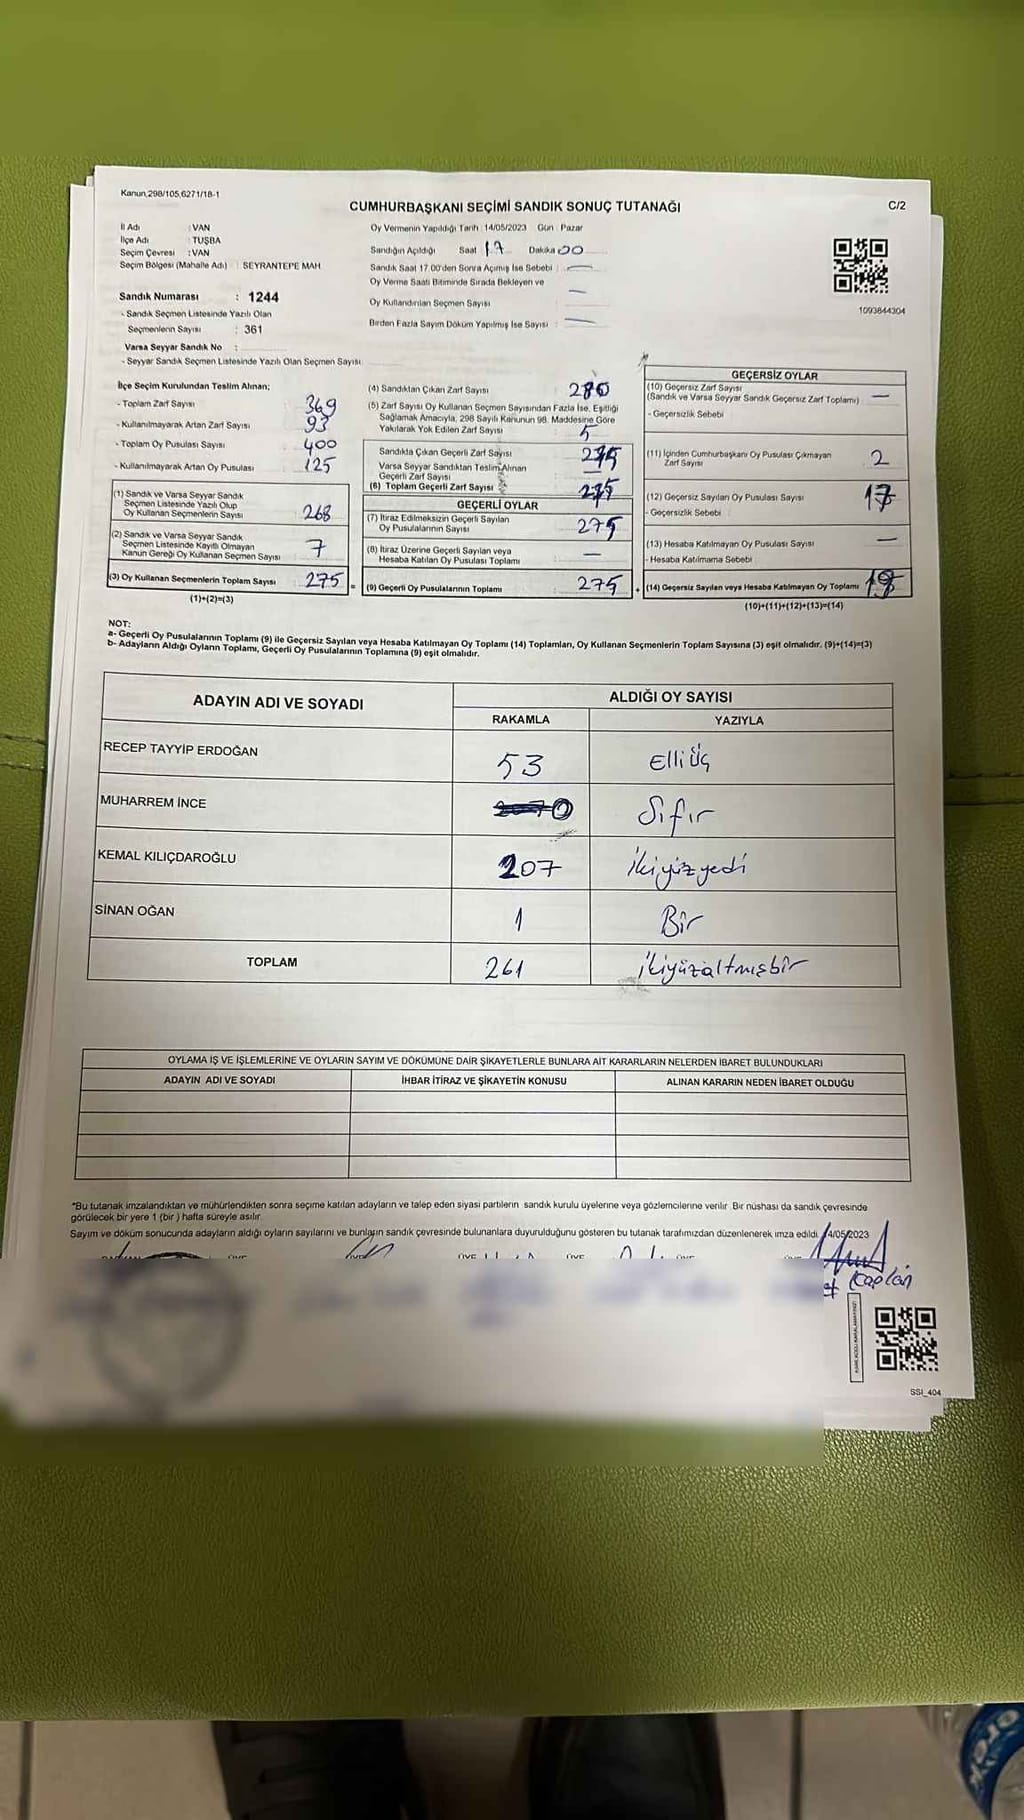 Kanun,298/105,6271/18-1
CUMHURBAŞKANI SEÇİMİ SANDIK SONUÇ TUTANAĞI
C/2
İl Adı : VAN
İlçe Adı : TUŞBA
Seçim Çevresi : VAN
Seçim Bölgesi (Mahalle Adı) : SEYRANTEPE MAH.
Sandık Numarası : 1244
- Sandık Seçmen Listesinde Yazılı Olan
Seçmenlerin Sayısı : 361
Varsa Seyyar Sandık No :
- Seyyar Sandık Seçmen Listesinde Yazılı Olan Seçmen Sayısı
Oy Vermenin Yapıldığı Tarih : 14/05/2023 Gün : Pazar
Sandığın Açıldığı Saat 17 Dakika 00
Sandık Saat 17.00'den Sonra Açılmış İse Sebebi : —
Oy Verme Saati Bitiminde Sırada Bekleyen ve
Oy Kullandırılan Seçmen Sayısı : —
Birden Fazla Sayım Döküm Yapılmış İse Sayısı : —
1093844304
İlçe Seçim Kurulundan Teslim Alınan;
- Toplam Zarf Sayısı : 369
- Kullanılmayarak Artan Zarf Sayısı : 93
- Toplam Oy Pusulası Sayısı : 400
- Kullanılmayarak Artan Oy Pusulası : 125
(1) Sandık ve Varsa Seyyar Sandık
Seçmen Listesinde Yazılı Olup
Oy Kullanan Seçmenlerin Sayısı : 268
(2) Sandık ve Varsa Seyyar Sandık
Seçmen Listesinde Kayıtlı Olmayan
Kanun Gereği Oy Kullanan Seçmen Sayısı : 7
(3) Oy Kullanan Seçmenlerin Toplam Sayısı : 275 =
(1)+(2)=(3)
(4) Sandıktan Çıkan Zarf Sayısı : 280
(5) Zarf Sayısı Oy Kullanan Seçmen Sayısından Fazla İse, Eşitliği
Sağlamak Amacıyla, 298 Sayılı Kanunun 98. Maddesine Göre
Yakılarak Yok Edilen Zarf Sayısı : 5
Sandıkta Çıkan Geçerli Zarf Sayısı : 275
Varsa Seyyar Sandıktan Teslim Alınan
Geçerli Zarf Sayısı : —
(6) Toplam Geçerli Zarf Sayısı : 275
GEÇERLİ OYLAR
(7) İtiraz Edilmeksizin Geçerli Sayılan
Oy Pusulalarının Sayısı : 275
(8) İtiraz Üzerine Geçerli Sayılan veya
Hesaba Katılan Oy Pusulası Toplamı : —
(9) Geçerli Oy Pusulalarının Toplamı : 275 +
GEÇERSİZ OYLAR
(10) Geçersiz Zarf Sayısı
(Sandık ve Varsa Seyyar Sandık Geçersiz Zarf Toplamı) : —
- Geçersizlik Sebebi :
(11) İçinden Cumhurbaşkanı Oy Pusulası Çıkmayan
Zarf Sayısı : 2
(12) Geçersiz Sayılan Oy Pusulası Sayısı : 17
- Geçersizlik Sebebi :
(13) Hesaba Katılmayan Oy Pusulası Sayısı : —
- Hesaba Katılmama Sebebi :
(14) Geçersiz Sayılan veya Hesaba Katılmayan Oy Toplamı : 19
(10)+(11)+(12)+(13)=(14)
NOT:
a- Geçerli Oy Pusulalarının Toplamı (9) ile Geçersiz Sayılan veya Hesaba Katılmayan Oy Toplamı (14) Toplamları, Oy Kullanan Seçmenlerin Toplam Sayısına (3) eşit olmalıdır. (9)+(14)=(3)
b- Adayların Aldığı Oyların Toplamı, Geçerli Oy Pusulalarının Toplamına (9) eşit olmalıdır.
ADAYIN ADI VE SOYADI
ALDIĞI OY SAYISI
RAKAMLA YAZIYLA
RECEP TAYYİP ERDOĞAN 53 Elli Üç
MUHARREM İNCE 0 Sıfır
KEMAL KILIÇDAROĞLU 207 İkiyüzyedi
SİNAN OĞAN 1 Bir
TOPLAM 261 ikiyüzaltmışbir
OYLAMA İŞ VE İŞLEMLERİNE VE OYLARIN SAYIM VE DÖKÜMÜNE DAİR ŞİKAYETLERLE BUNLARA AİT KARARLARIN NELERDEN İBARET BULUNDUKLARI
ADAYIN ADI VE SOYADI İHBAR İTİRAZ VE ŞİKAYETİN KONUSU ALINAN KARARIN NEDEN İBARET OLDUĞU
*Bu tutanak imzalandıktan ve mühürlendikten sonra seçime katılan adayların ve talep eden siyasi partilerin sandık kurulu üyelerine veya gözlemcilerine verilir. Bir nüshası da sandık çevresinde
görülecek bir yere 1 (bir) hafta süreyle asılır.
Sayım ve döküm sonucunda adayların aldığı oyların sayılarını ve bunların sandık çevresinde bulunanlara duyurulduğunu gösteren bu tutanak tarafımızdan düzenlenerek imza edildi. 14/05/2023
Kaplan
SSI_404